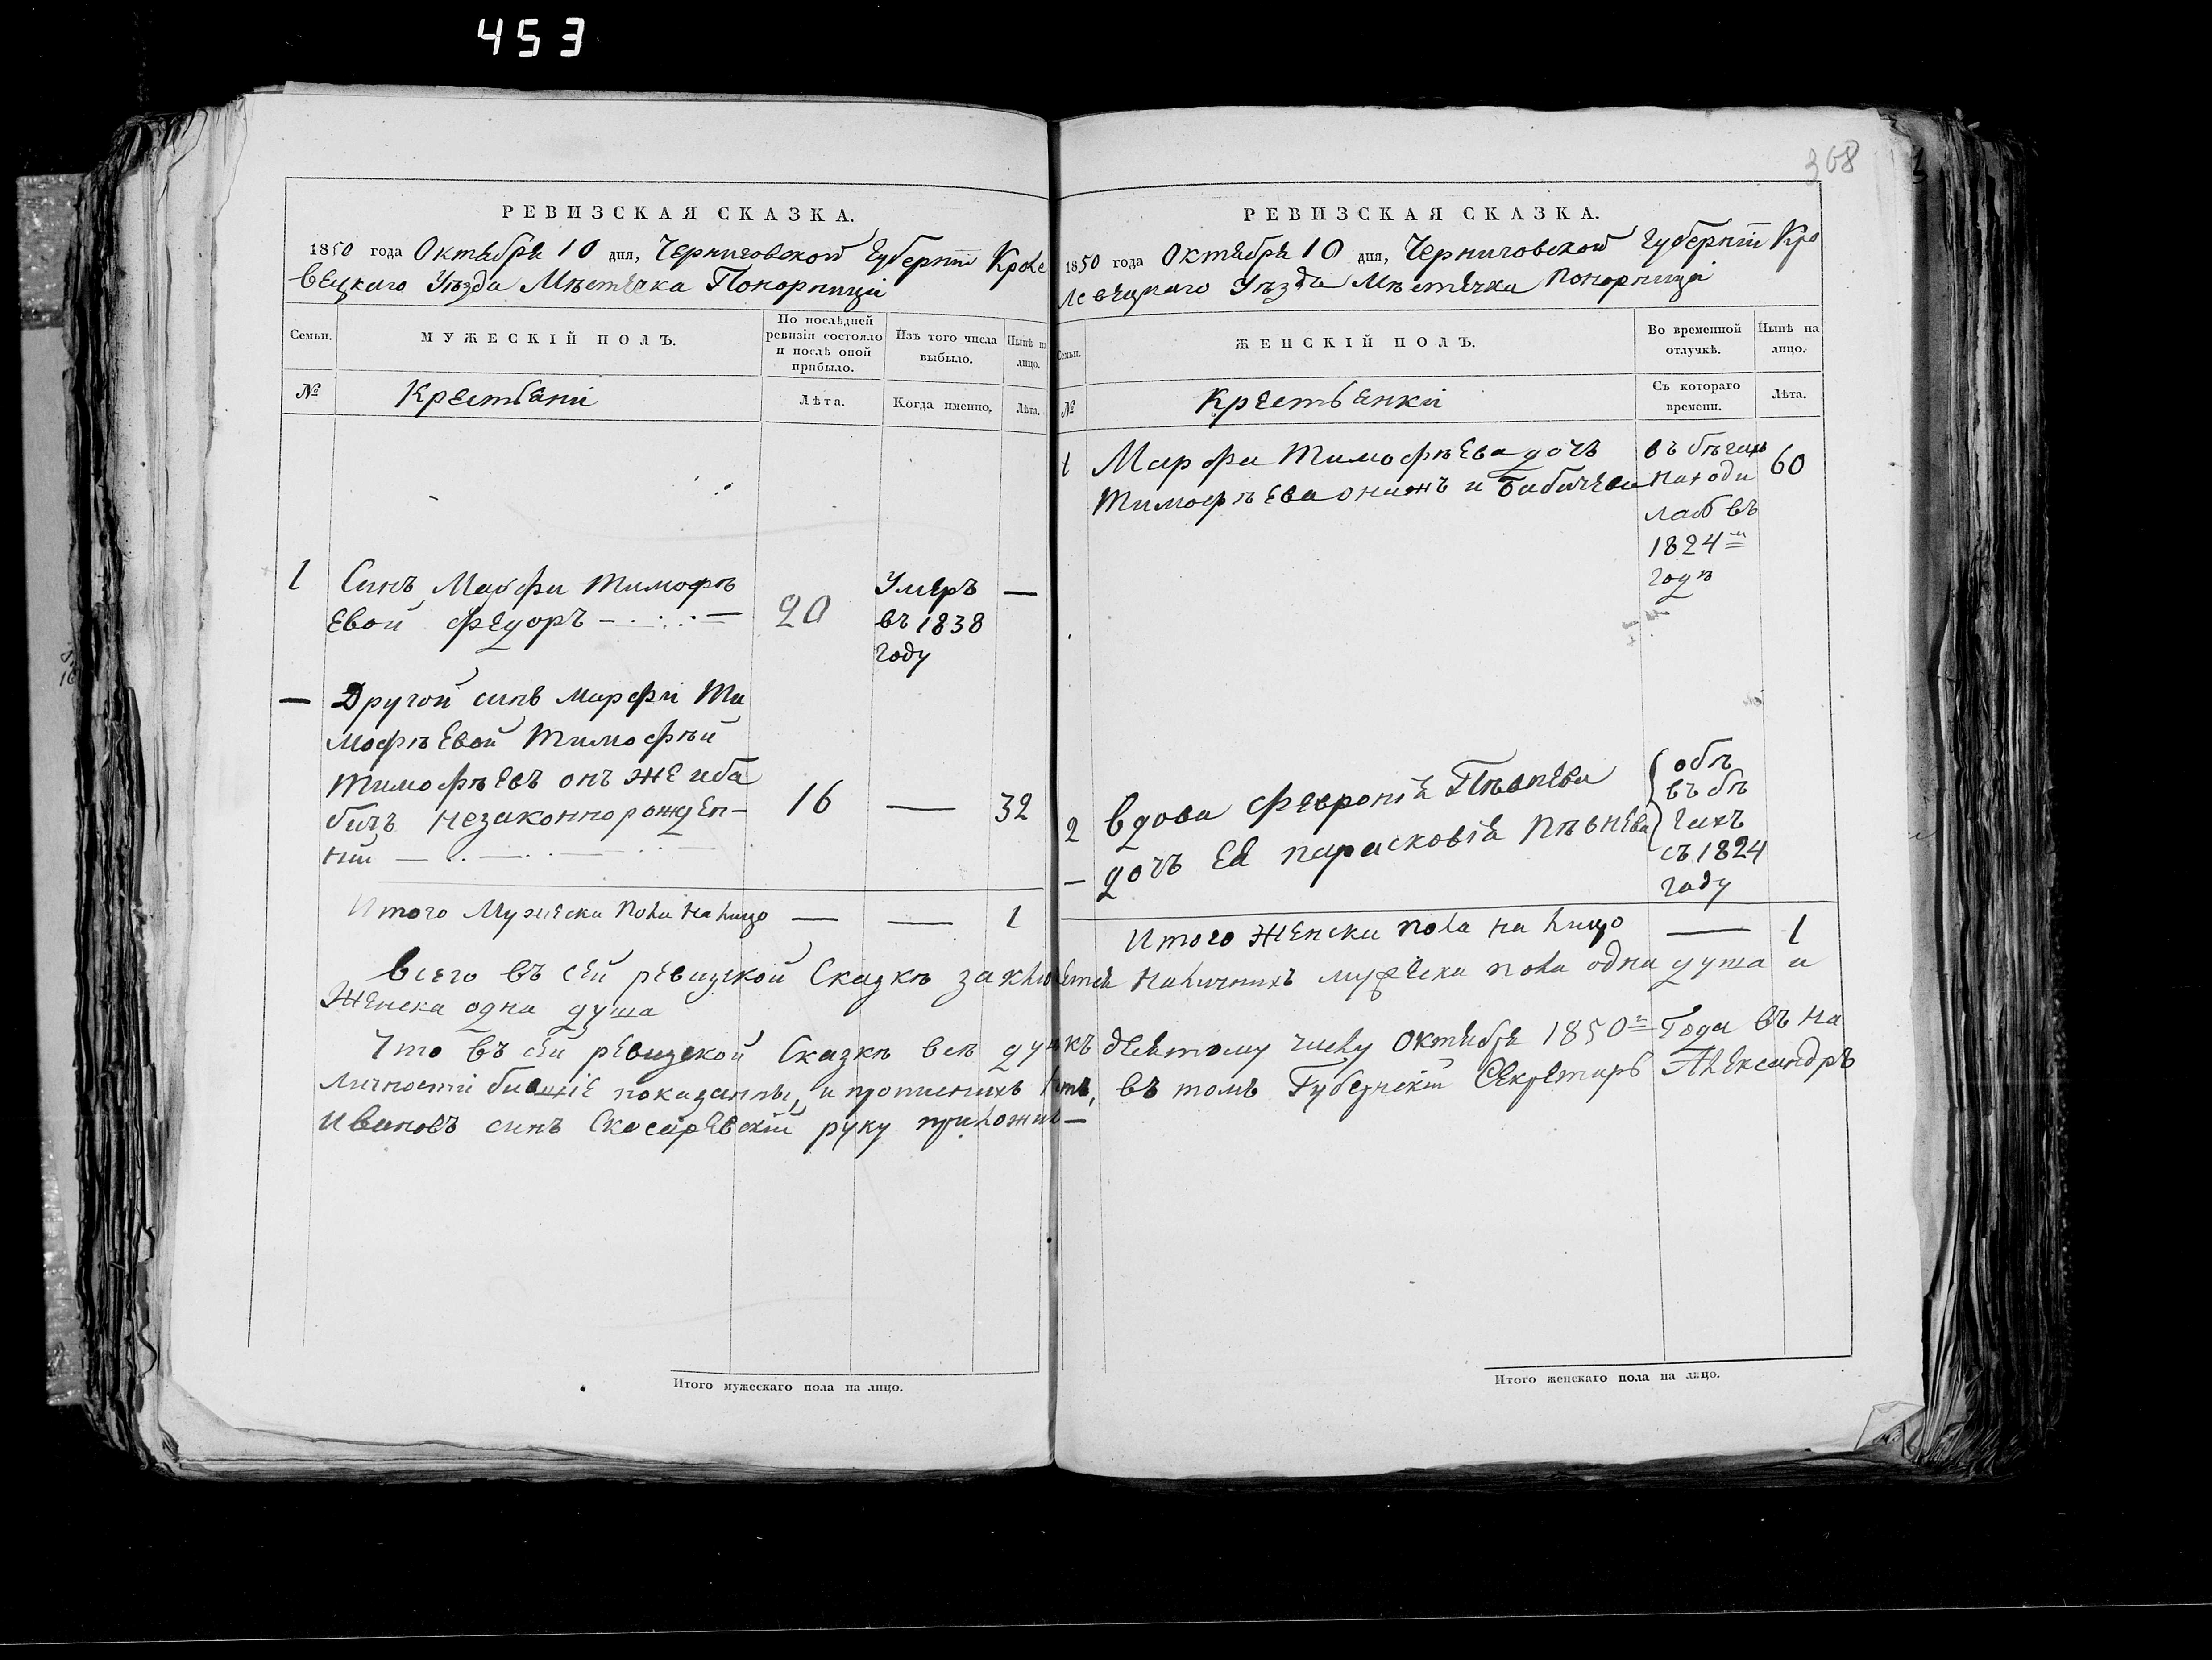 453
368
РЕВИЗСКАЯ СКАЗКА.
1850 года Октября 10 дня, Черниговской Губернiи Кроле
вецкаго Уѣзда Мѣстечка Понорници
Семьи.
МУЖЕСКІЙ ПОЛЪ.
По послѣдней
ревизіи состояло
и послѣ оной
прибыло.
Изъ того числа
выбыло.
Нынѣ на
лицо.
№
Крестьяни
Лѣта.
Когда именно.
Лѣта.
1 Синъ Марфи Тимофѣ
евой Федоръ — 20 Умеръ —
въ 1838
году
— Другой синъ Марфи Ти
мофѣевой Тимофѣй
Тимофѣевъ онъ же и ба
бичъ незаконнорожден-
ний — 16 — 32
Итого Мужеска пола на лицо — — 1
РЕВИЗСКАЯ СКАЗКА.
1850 года Октября 10 дня, Черниговской Губернiи Кро
левецкаго Уѣзда Мѣстечка Понорници
Семьи.
ЖЕНСКІЙ ПОЛЪ.
Во временной
отлучкѣ.
Нынѣ на
лицо.
№
Крестьянки
Съ котораго
времени.
Лѣта.
1 Марфа Тимофѣева дочь въ бѣгахъ 60
Тимофѣева онажъ и Бабичева находи
лась въ
1824м
годѣ
2 Вдова Феврония Пѣвнева
— дочь ея Парасковія Пѣвнева
обѣ
въ бѣ
гахъ
съ 1824
году
Итого Женска пола на лицо — 1
Всего въ сей ревизской Сказкѣ заключается наличнихъ мужеска пола одна душа и
Женска одна душа
Что въ сей ревизской Сказкѣ всѣ душ къ десятому числу Октября 1850г Года въ на
личности бившіе показанны, и прописнихъ нѣтъ, въ томъ Губернскiй Секретарь Александръ
Ивановъ синъ Скосаревскiй руку приложилъ —
Итого мужескаго пола на лицо.
Итого женскаго пола на лицо.